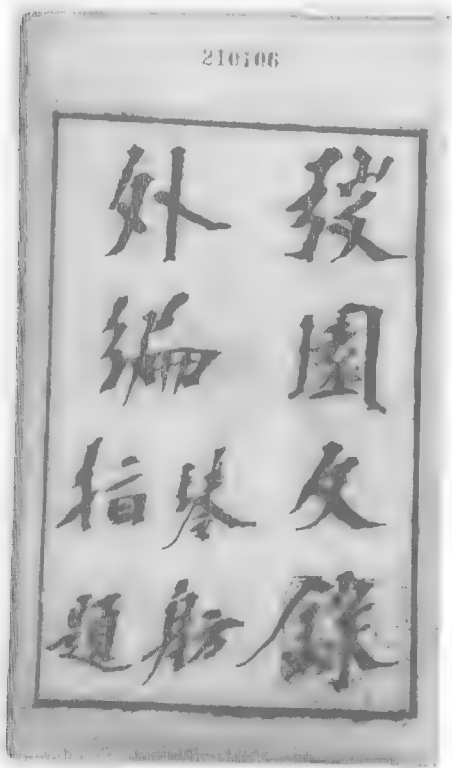 210106
弢園文錄
外編
琴舫
指題